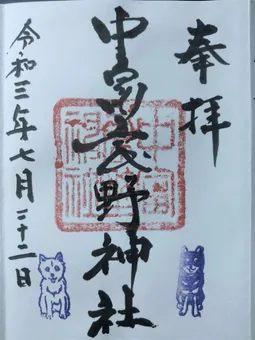 奉拝
中島長野神社
令和三年七月二十二日